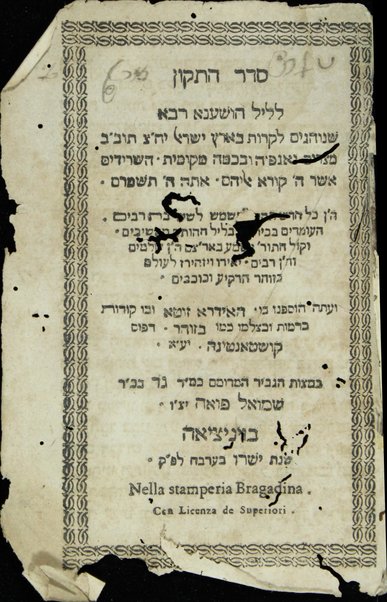 סדר התקון
לליל הושענא רבא
שנוהגים לקרות בארץ ישראל יח״צ תוב״ב
ואנפיה ובכמה מקומות · השרידים
אשר ה׳ קורא אליהם · אתה ה׳ תשמרם
ה״ן כל
העומדים בבית בליל חהות
וקול התור באר־צם ה״ן
וה״ן רבים · יאירו ויזהירו לעולם
בזוהר הרקיע וככוכבים
ועתה הוספנו בו · האידרא זוטא ובו קורות
ברמות ובצלמו כמו בזוהר · דפוס
קושטאנטינה · יע״א
במצות הגביר המרומם כמ״ר גד בכ״ר
שמואל פואה יצ״ו
בויניציאה
שנת ישרו בערבה לפ״ק
Nella stamperia Bragadina .
Con Licenza de Superiori .